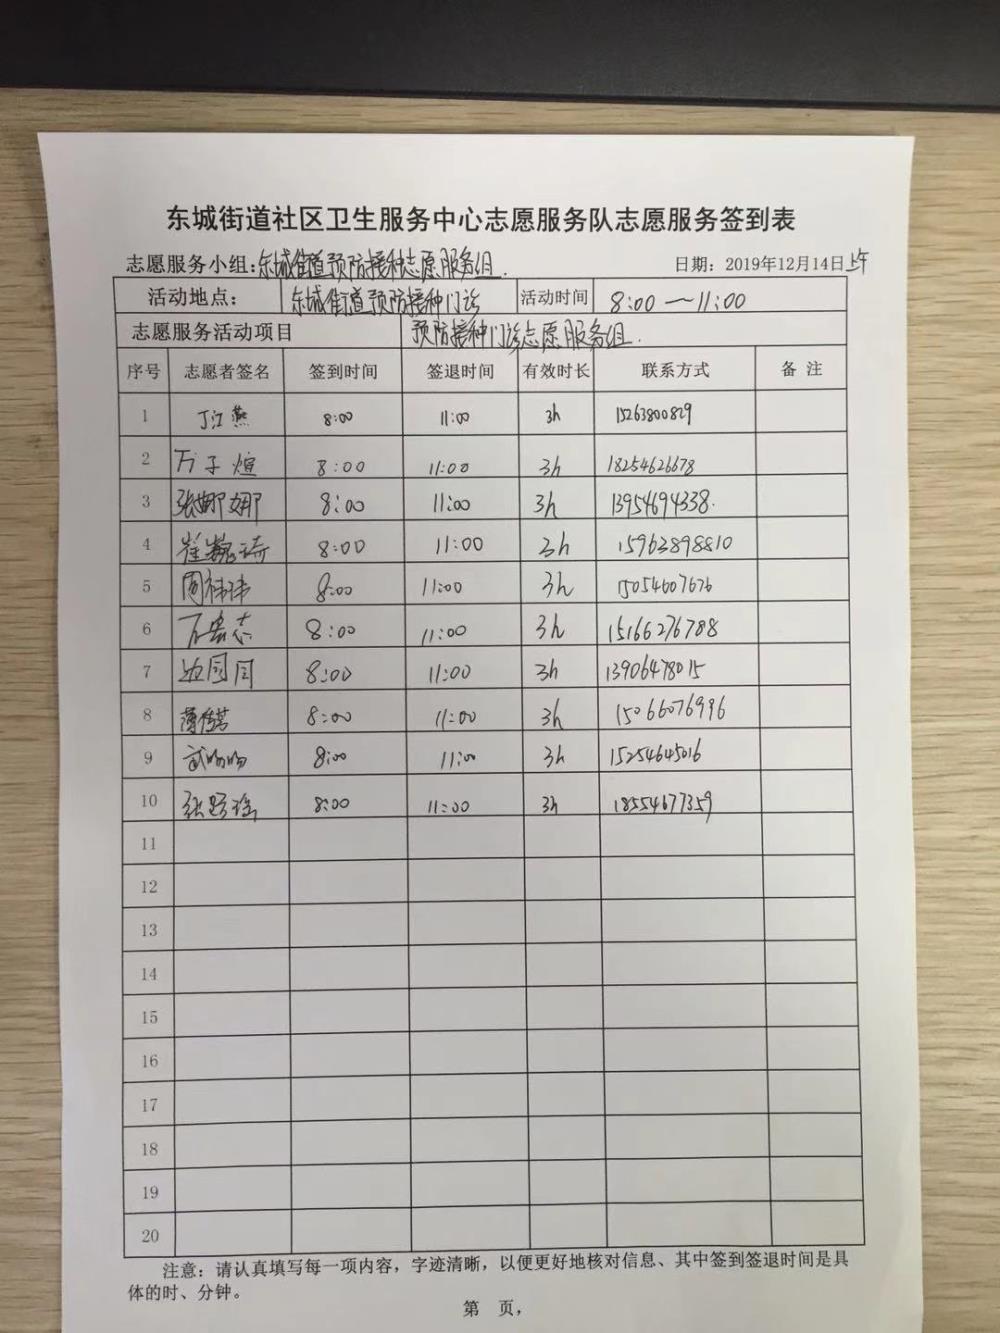 东城街道社区卫生服务中心志愿服务队志愿服务签到表
志愿服务小组:东城街道预防接种志愿服务组. 日期：2019年12月14日上午
活动地点： 东城街道预防接种门诊 活动时间 8:00 — 11:00
志愿服务活动项目 预防接种门诊志愿服务组.
序号 志愿者签名 签到时间 签退时间 有效时长 联系方式 备 注
1 丁江燕 8:00 11:00 3h 15263800829
2 万子煊 8:00 11:00 3h 18254626678
3 张娜娜 8:00 11:00 3h 13954694338.
4 崔巍琦 8:00 11:00 3h 15963898810
5 周祎祎 8:00 11:00 3h 15054607676
6 8:00 11:00 3h 15166276788
7 边园园 8:00 11:00 3h 13906478015
8 8:00 11:00 3h 15066076996
9 武吻吻 8:00 11:00 3h 15254645016
10 8:00 11:00 3h 18554677359
11
12
13
14
15
16
17
18
19
20
注意：请认真填写每一项内容，字迹清晰，以便更好地核对信息、其中签到签退时间是具
体的时、分钟。
第 页，